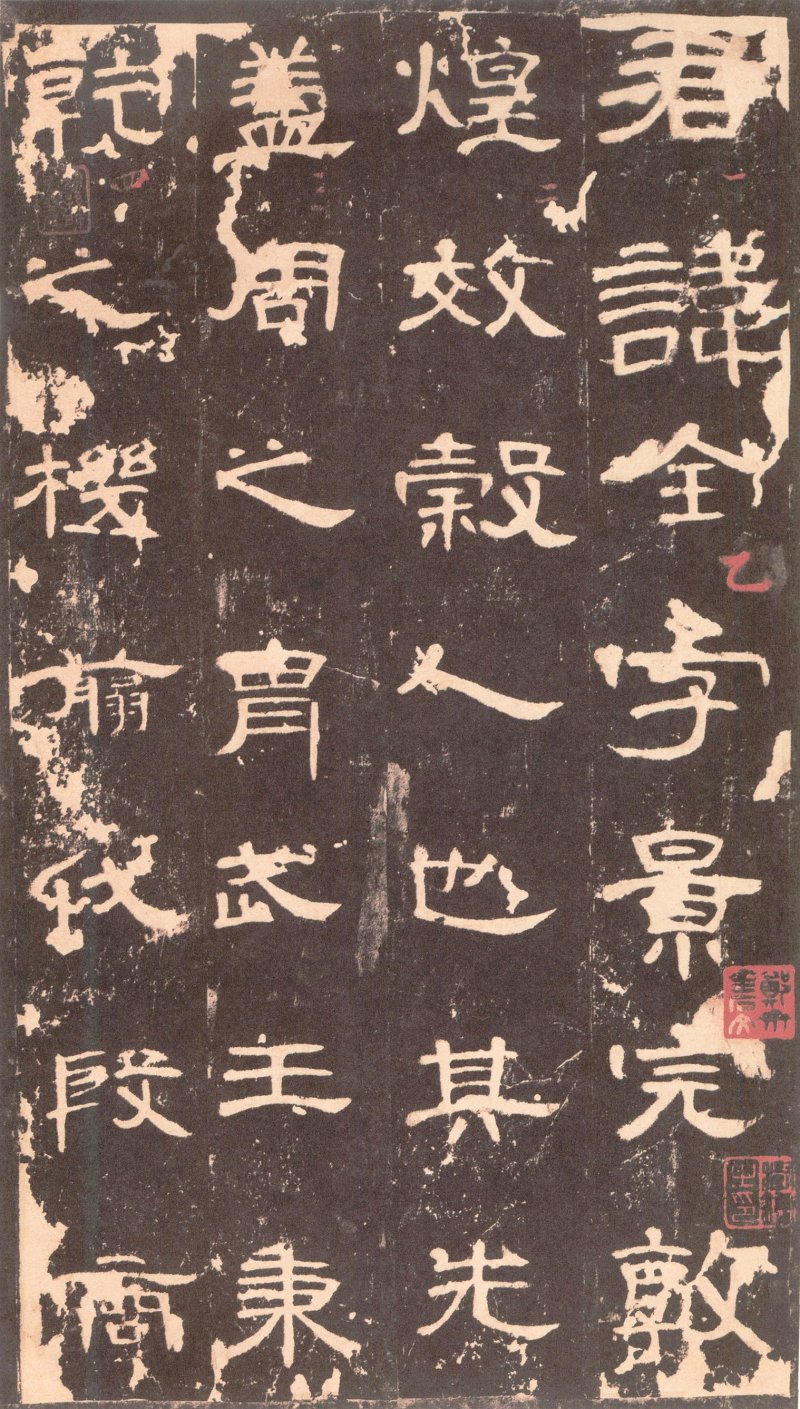 君諱全字景完敦
煌效穀人也其先
蓋周之胄武王秉
乾之機翦伐殷商
一
乙
二
三
四